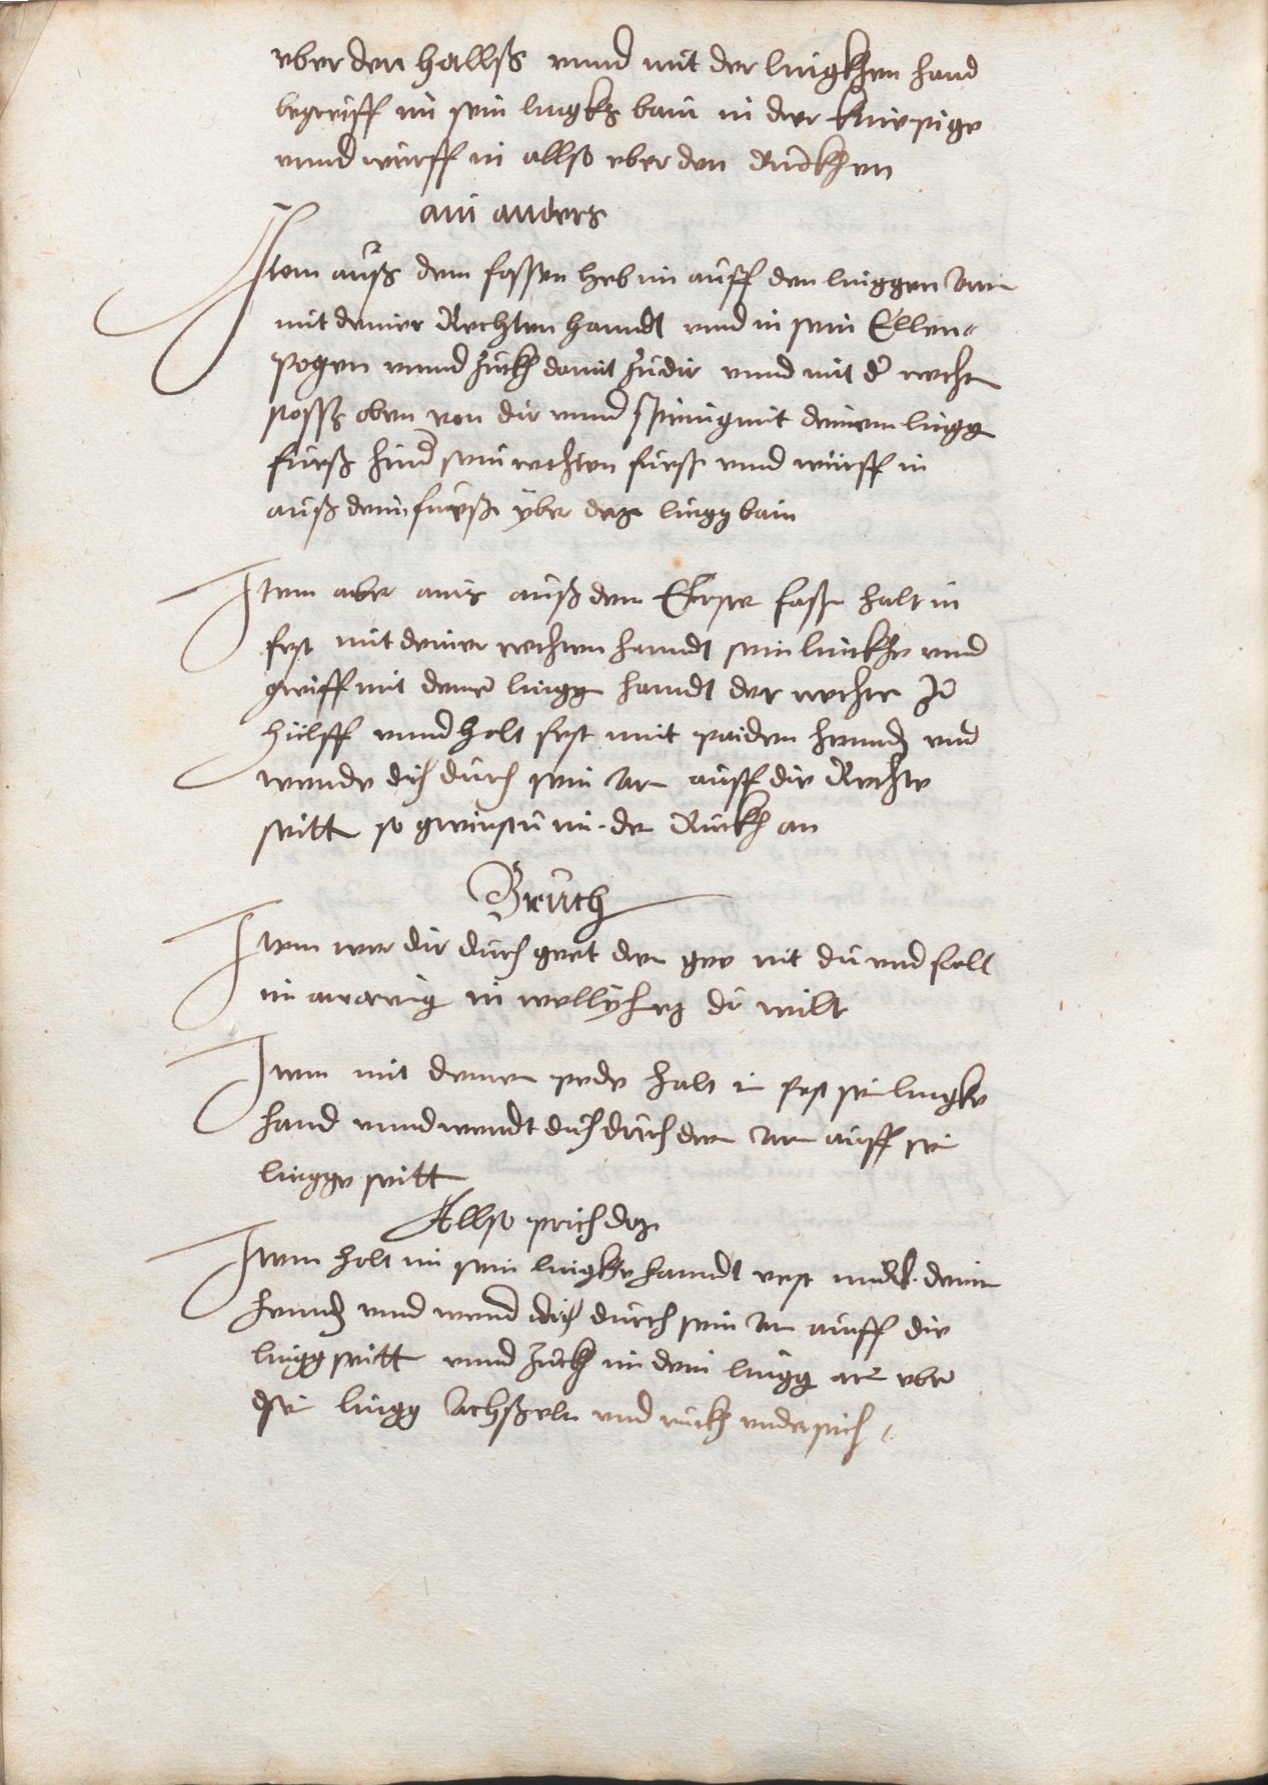 vber den hallß vnnd mit der lingkhen hand
begreiff im sein lingks bain in der kniepige
vnnd wirff in allso vber den Rückhen
ain anders
Item auß dem fassen heb im auff den linggen Arm
mit deiner Rechten hanndt vnd in sein Ellen„
pogen vnnd zuckh damit zu dir vnnd mit d' recht
stosß oben von dir vnnd spring mit deinem lingg
fueß hind' sein rechten fueß vnd würff in
auß dem fueß über daz lingg bain
Item aber ains auß dem Erste fasße halt in
fest mit deiner rechten hanndt sein linckhe vnd
greiff mit deine lingg handt der rechte zu
hülff vnnd halt fest mit paiden hennd vnd
wende dich durch sein Arm auff die Rechte
seitt so gwinstu im de Ruckh an
Bruch
Item wer dir durch geet dem gee nit du vnd felt
im in wellichez du wilt
Item mit deinen halt in fest sein lingke
hand vnnd wendt dich durch den Arm auff sei
lingge seitt
Allso prich daz
Item halt im sein lingkhe hanndt vest deine
hennd vnd wend dich durch sein Arm auff die
lingg seitt vnnd zuckh im den lingg arm vber
die lingg Achßeln vnd ruckh vndersich